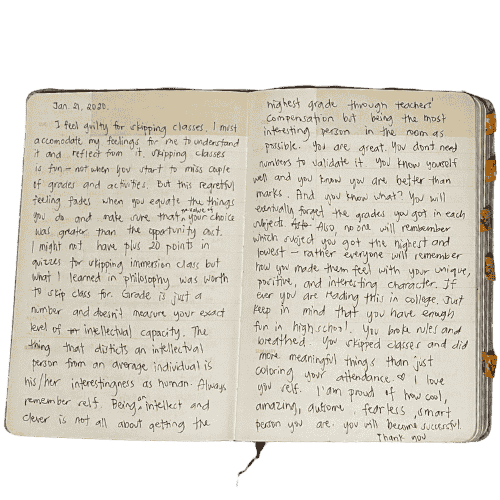 Jan. 21, 2020.
I feel guilty for skipping classes. I must
accomodate my feelings for me to understand
it and reflect from it. Skipping classes
is fun – not when you start to miss couple
of grades and activities. But this regretful
feeling fades when you equate the things
you do and make sure that your choice
was greater than the opportunity cut.
I might not have plus 20 points in
quizzes for skipping immersion class but
what I learned in philosophy was worth
to skip class for. Grade is just a
number and doesn't measure your exact
level of intellectual capacity. The
thing that disticts an intellectual
person from an average individual is
his/her interestingness as human. Always
remember self. Being an intellect and
clever is not all about getting the
highest grade through teachers'
compensation but being the most
interesting person in the room as
possible. You are great. You dont need
numbers to validate it. You know yourself
well and you know you are better than
marks. And you know what? You will
eventually forget the grades you got in each
subject. Also, no one will remember
which subject you got the highest and
lowest – rather everyone will remember
how you made them feel with your unique,
positive, and interesting character. If
ever you are reading this in college. Just
keep in mind that you have enough
fun in highschool. You broke rules and
breathed. You skipped classes and did
more meaningful things than just
coloring your attendance. I love
you self. I'am proud of how cool,
amazing, awesome, fearless, smart
person you are. You will become successful.
Thank you